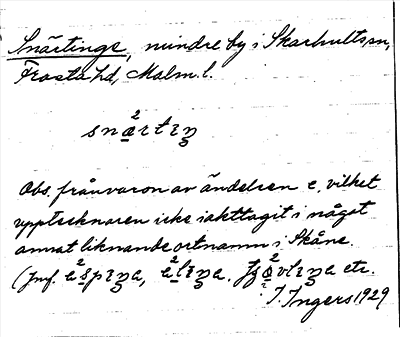 Snärtinge, mindre by i Skarhults sn,
Frosta hd, Malm. l.
snärtiŋ
Obs. frånvaron av ändelsen e, vilket
upptecknaren icke iakttagit i något
annat liknande ortnamn i Skåne.
(Jmf.
etc.
I. Ingers 1929